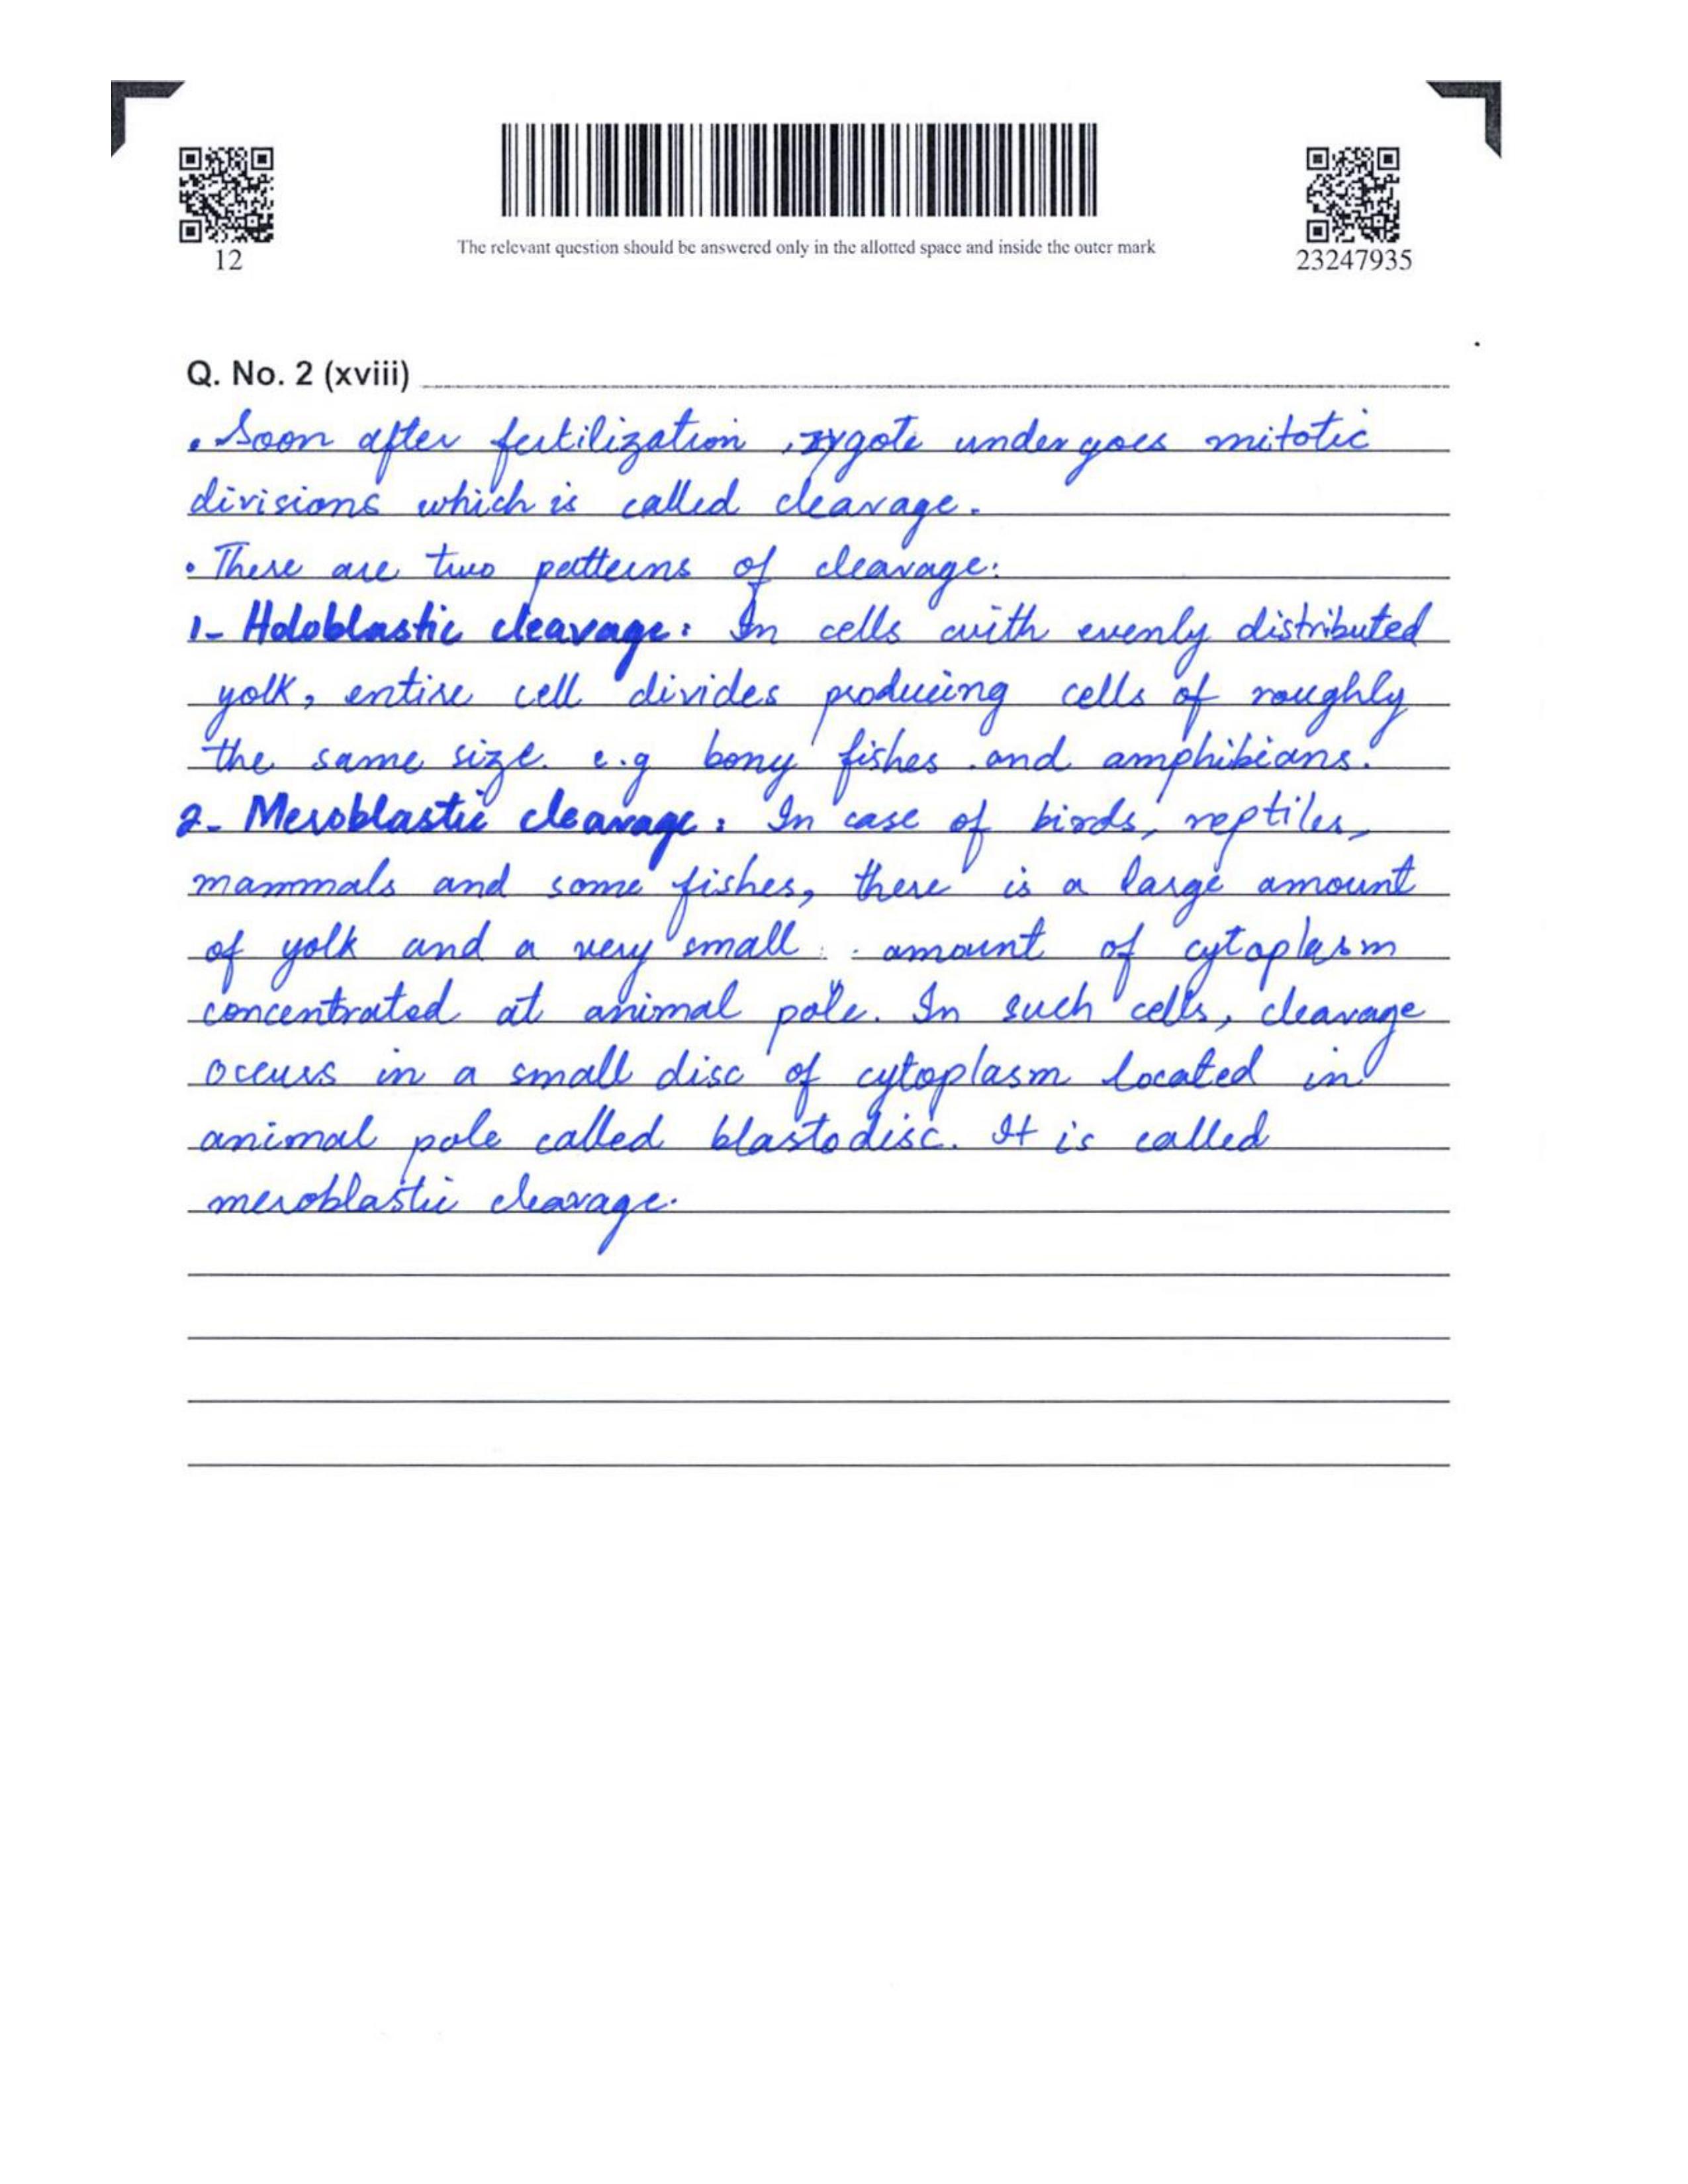 12
The relevant question should be answered only in the allotted space and inside the outer mark
23247935
Q. No. 2 (xviii)
• Soon after fertilization, zygote undergoes mitotic
divisions which is called cleavage.
• There are two patterns of cleavage:
1- Holoblastic cleavage: In cells with evenly distributed
yolk, entire cell divides producing cells of roughly
the same size. e.g bony fishes and amphibians.
2- Meroblastic cleavage: In case of birds, reptiles,
mammals and some fishes, there is a large amount
of yolk and a very small amount of cytoplasm
concentrated at animal pole. In such cells, cleavage
occurs in a small disc of cytoplasm located in
animal pole called blastodisc. It is called
meroblastic cleavage.